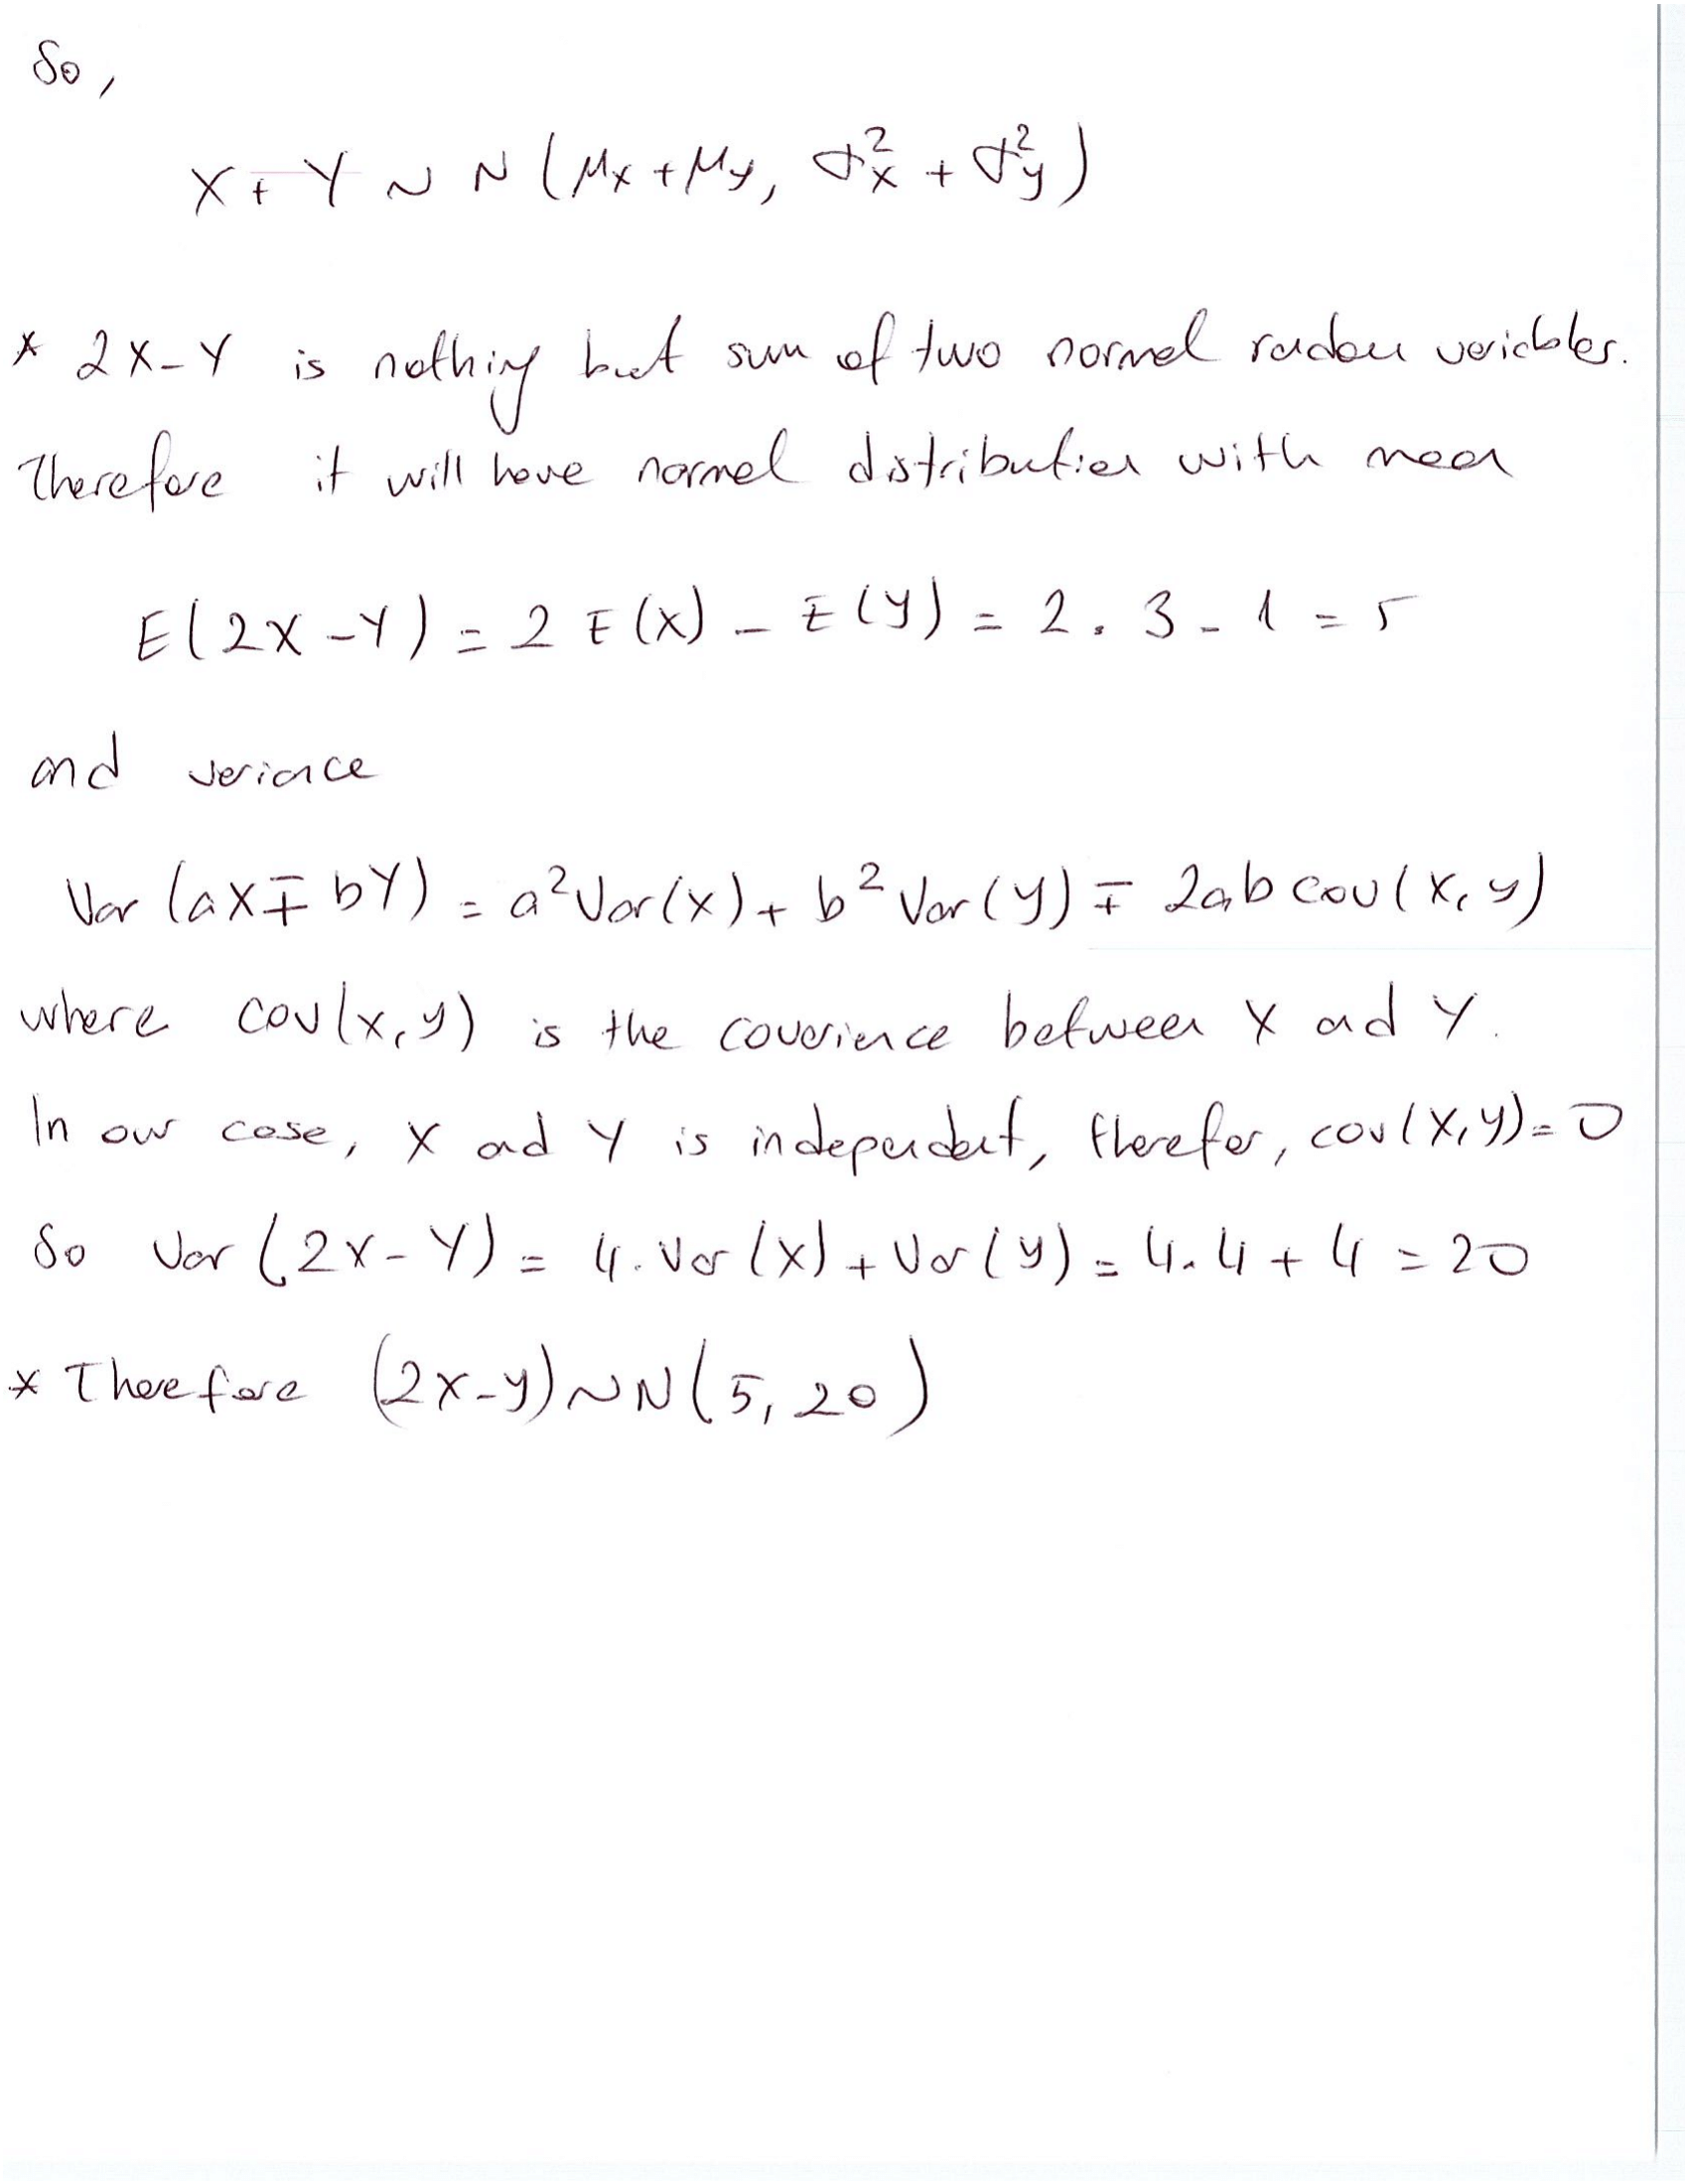 So,
X + Y ~ N (μx + μy, σ²x + σ²y)
* 2X - Y is nothing but sum of two normal random variables.
Therefore it will have normal distribution with mean
E(2X - Y) = 2 E(X) - E(Y) = 2 . 3 - 1 = 5
and variance
Var (aX ∓ bY) = a² Var(X) + b² Var(Y) ∓ 2ab cov(X, Y)
where cov(X, Y) is the covarience between X and Y.
In our case, X and Y is independent, therefor, cov(X, Y) = 0
So Var (2X - Y) = 4. Var (X) + Var (Y) = 4. 4 + 4 = 20
* Therefore (2X - Y) ~ N(5, 20)